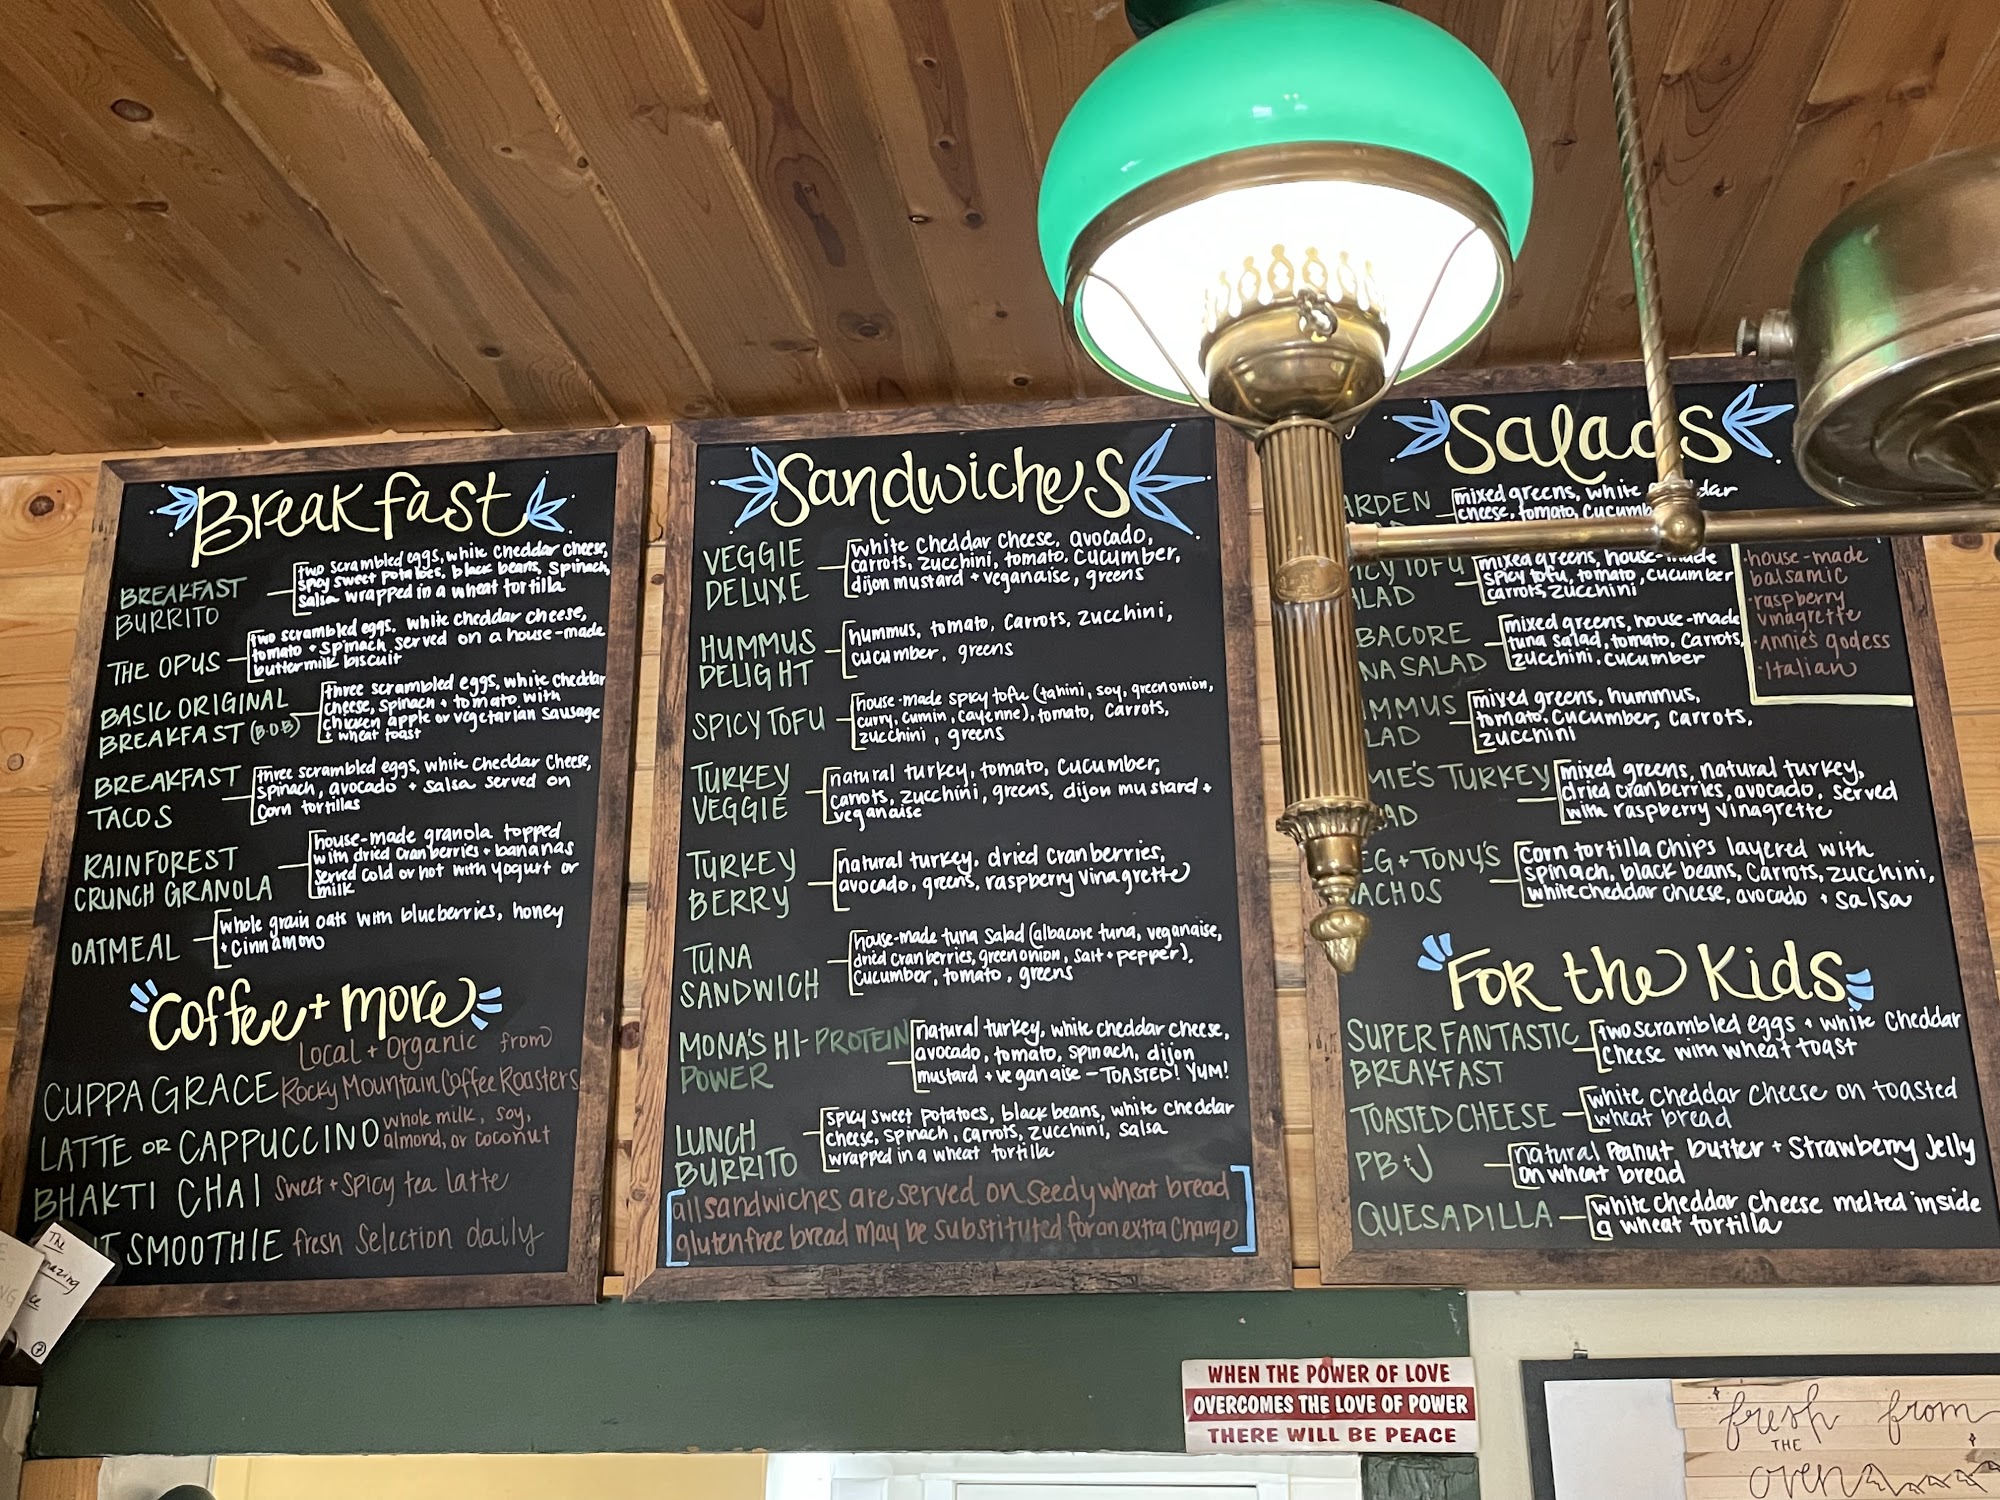 Breakfast
BREAKFAST
BURRITO
two scrambled eggs, white cheddar cheese,
spicy sweet potatoes, black beans, spinach,
salsa wrapped in a wheat tortilla
THE OPUS
two scrambled eggs, white cheddar cheese,
tomato + spinach served on a house-made
buttermilk biscuit
BASIC ORIGINAL
BREAKFAST (B.O.B)
three scrambled eggs, white cheddar
cheese, spinach + tomato with
chicken apple or vegetarian sausage
+ wheat toast
BREAKFAST
TACOS
three scrambled eggs, white cheddar cheese,
spinach, avocado + salsa served on
corn tortillas
RAINFOREST
CRUNCH GRANOLA
house-made granola topped
with dried cranberries + bananas
served cold or hot with yogurt or
milk
OATMEAL
whole grain oats with blueberries, honey
+ cinnamon
Coffee + more
CUPPA GRACE
Local + Organic from
Rocky Mountain Coffee Roasters
LATTE OR CAPPUCCINO
whole milk, soy,
almond, or coconut
BHAKTI CHAI sweet + spicy tea latte
SMOOTHIE fresh selection daily
Sandwiches
VEGGIE
DELUXE
white cheddar cheese, avocado,
carrots, zucchini, tomato, cucumber,
dijon mustard + veganaise, greens
HUMMUS
DELIGHT
hummus, tomato, carrots, zucchini,
cucumber, greens
SPICY TOFU
house-made spicy tofu (tahini, soy, green onion,
curry, cumin, cayenne), tomato, carrots,
zucchini, greens
TURKEY
VEGGIE
natural turkey, tomato, cucumber,
carrots, zucchini, greens, dijon mustard +
veganaise
TURKEY
BERRY
natural turkey, dried cranberries,
avocado, greens, raspberry vinagrette
TUNA
SANDWICH
house-made tuna salad (albacore tuna, veganaise,
dried cranberries, green onion, salt + pepper),
cucumber, tomato, greens
MONA'S HI-PROTEIN
POWER
natural turkey, white cheddar cheese,
avocado, tomato, spinach, dijon
mustard + veganaise - TOASTED! YUM!
LUNCH
BURRITO
spicy sweet potatoes, black beans, white cheddar
cheese, spinach, carrots, zucchini, salsa
wrapped in a wheat tortilla
all sandwiches are served on seedy wheat bread
gluten free bread may be substituted for an extra charge
Salads
ARDEN
mixed greens, white cheddar
cheese, tomato, cucumb
ICY TOFU
ALAD
mixed greens, house-made
spicy tofu, tomato, cucumber
carrots, zucchini
BACORE
NA SALAD
mixed greens, house-made
tuna salad, tomato, carrots,
zucchini, cucumber
MMUS
LAD
mixed greens, hummus,
tomato, cucumber, carrots,
zucchini
MIE'S TURKEY
AD
mixed greens, natural turkey,
dried cranberries, avocado, served
with raspberry vinagrette
EG + TONY'S
ACHOS
corn tortilla chips layered with
spinach, black beans, carrots, zucchini,
white cheddar cheese, avocado + salsa
·house-made
balsamic
·raspberry
vinagrette
·Annie's godess
·Italian
FOR the Kids
SUPER FANTASTIC
BREAKFAST
two scrambled eggs + white cheddar
cheese with wheat toast
TOASTED CHEESE
white cheddar cheese on toasted
wheat bread
PB+J
natural peanut butter + strawberry jelly
on wheat bread
QUESADILLA
white cheddar cheese melted inside
a wheat tortilla
The
WHEN THE POWER OF LOVE
OVERCOMES THE LOVE OF POWER
THERE WILL BE PEACE
fresh from
THE
oven